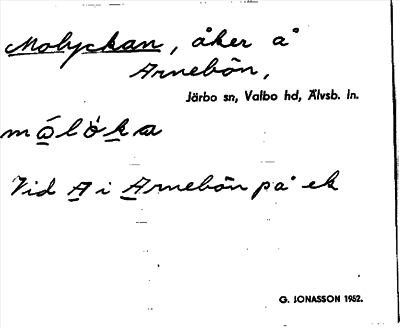 Molyckan, åker å
Arnebön,
Järbo sn, Valbo hd, Älvsb. ln.
målȯka
Vid A i Arnebön på ek
G. JONASSON 1952.